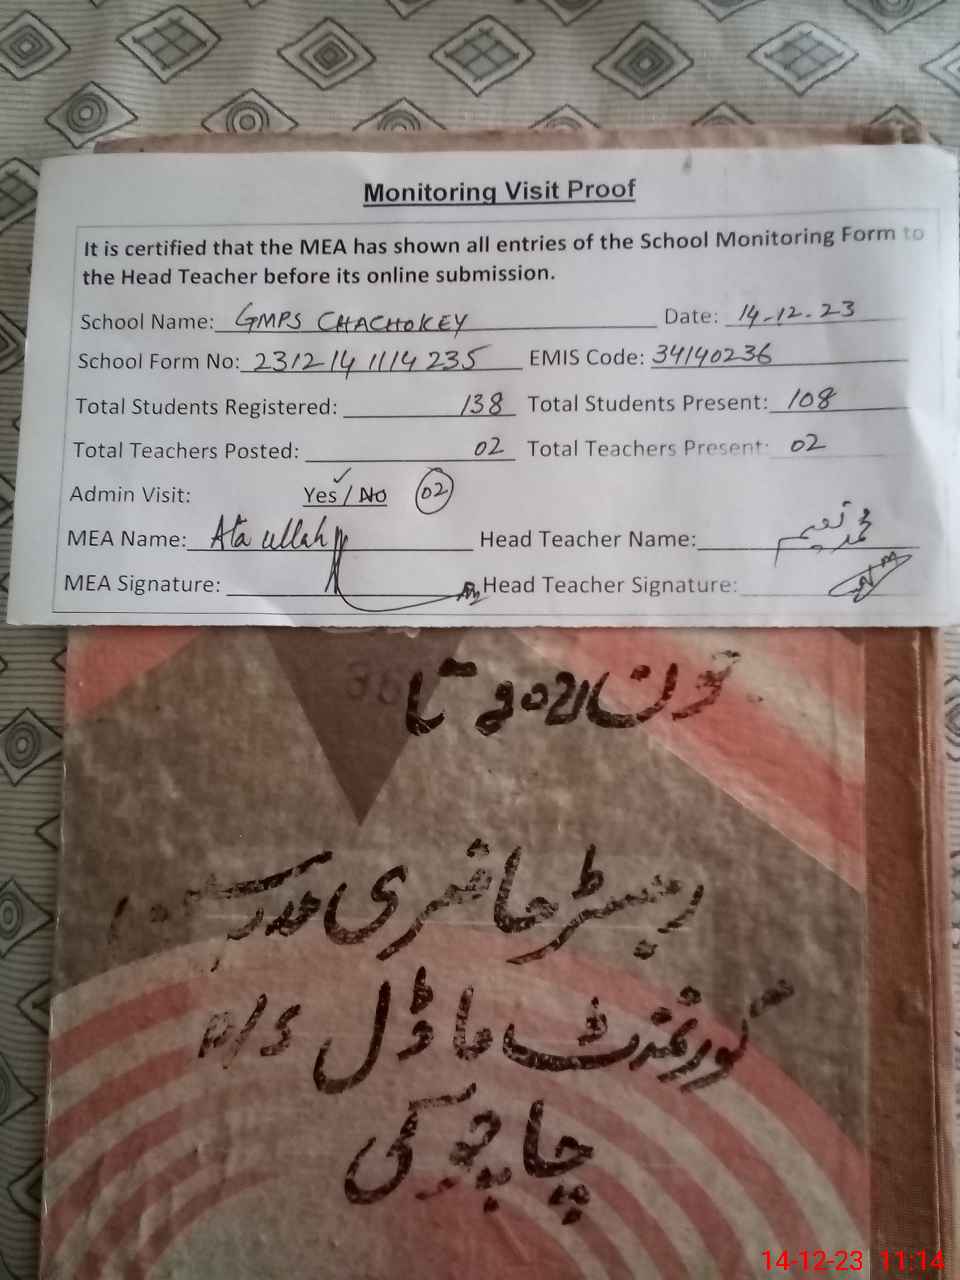 Monitoring Visit Proof
It is certified that the MEA has shown all entries of the School Monitoring Form to
the Head Teacher before its online submission.
School Name: GMPS CHACHOKEY Date: 14-12-23
School Form No: 2312141114235 EMIS Code: 34140236
Total Students Registered: 138 Total Students Present: 108
Total Teachers Posted: 02 Total Teachers Present: 02
Admin Visit: Yes / No 02
MEA Name: Ata ullah Head Teacher Name: محمد نعیم
MEA Signature: Head Teacher Signature:
رجسٹر حاضری مدرسین
گورنمنٹ ماڈل P/S
چاچوکی
14-12-23 11:14